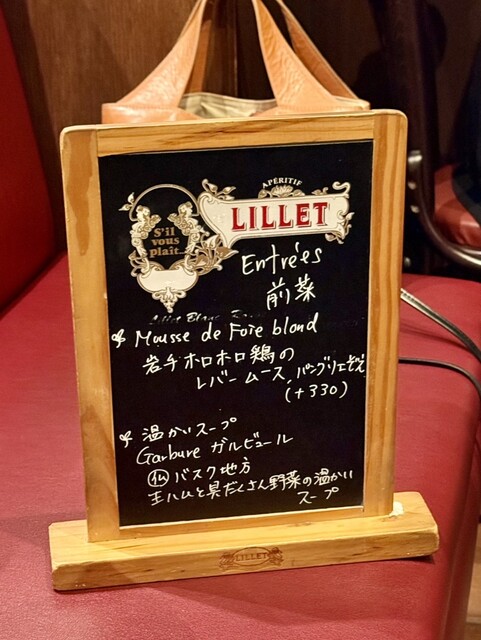 APÉRITIF
LILLET
S'il
vous
plaît...
Entrées
前菜
Mousse de Foie blond
岩手ホロホロ鶏の
レバームース、パングリエ
(+330)
温かいスープ
Garbure ガルビュール
仏 バスク地方
生ハムと具だくさん野菜の温かい
スープ
LILLET